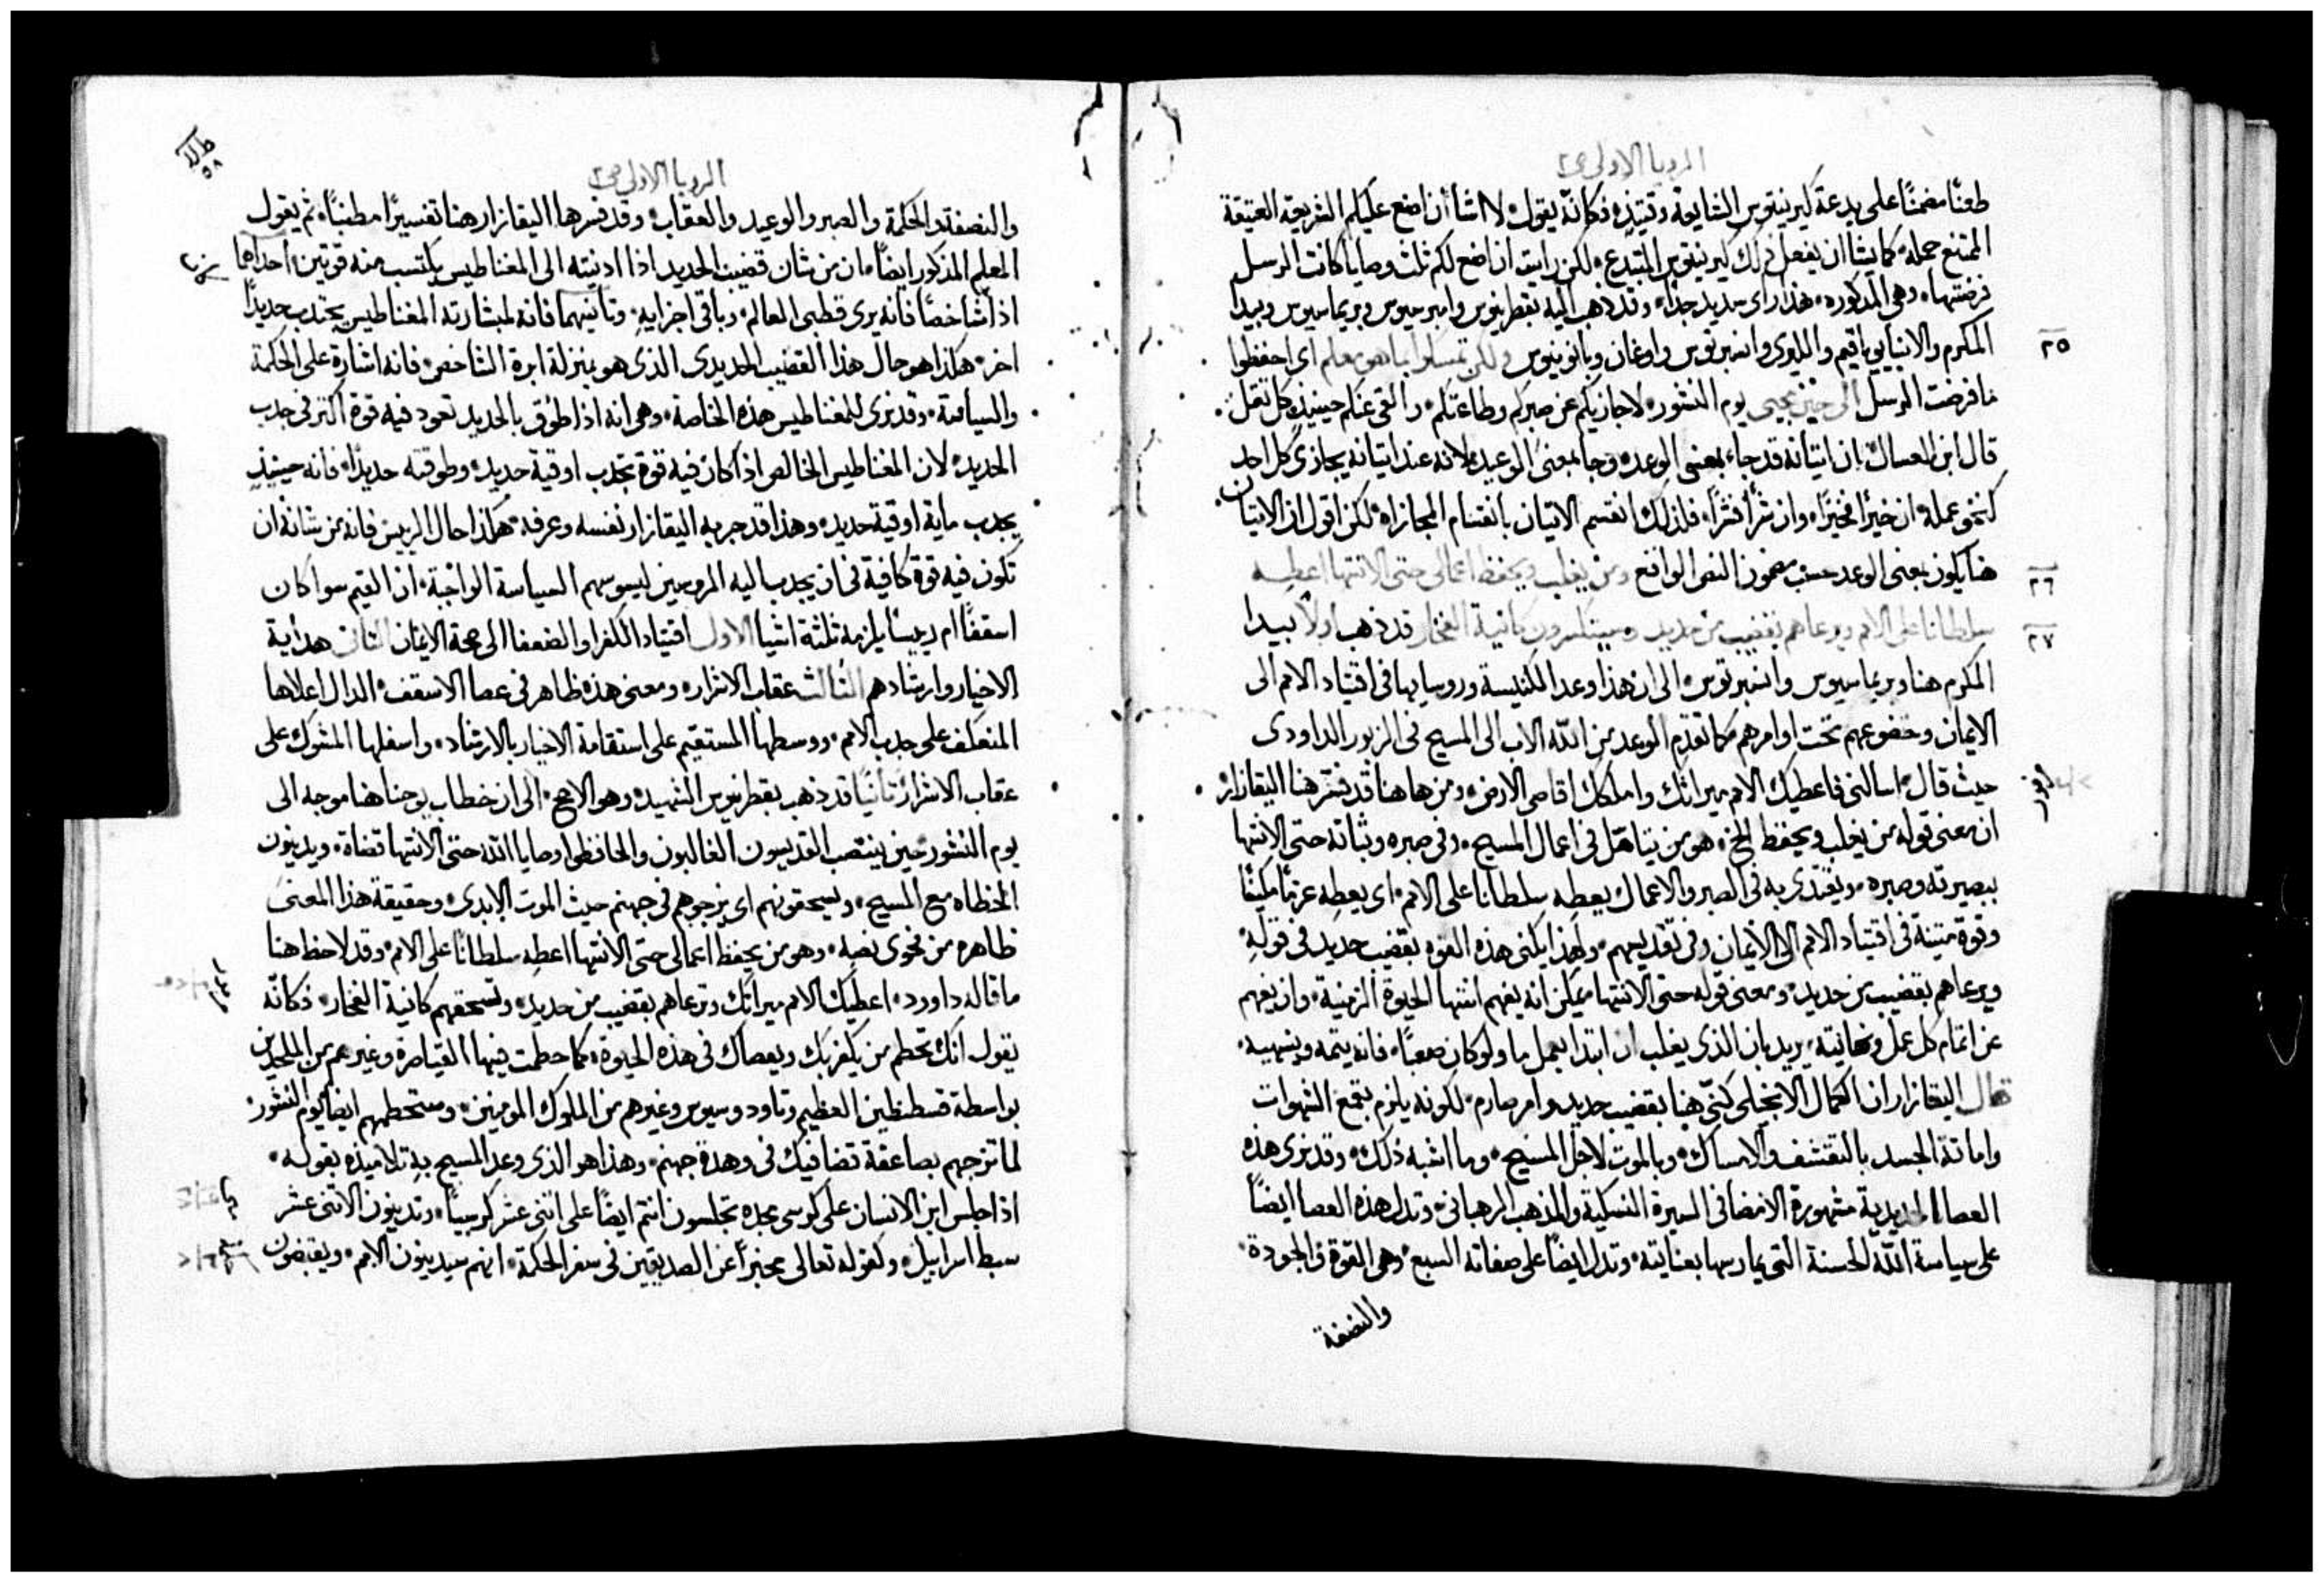 الرويا الاولى ص٢
طعنًا مضمنًا على بدعة كيرينتوس الشايعة وقتيذٍ فكانّه يقول لا اشأ أن اضع عليكم الشريعة العتيقة
الممتنع حمله كما يشا ان يفعل ذلك كيرينتوس المبتدع لكن رايت ان اضع لكم ثلث وصايا كانت الرسل
فرضتها وهى المذكوره هذا راى سديد جدًا وقد ذهب اليه بقطرينوس وامبرسيوس وبريماسيوس وبيدا
٢٥
المكرم والانبا يوياقيم والليرى وانسبرتوس واوغان وبانونينوس ولكن تمسكوا بما هو معكم اى احفظوا
ما فرضت الرسل الى حين مجيى يوم النشور لاجازيكم عن صبركم وطاعتكم والقى عنكم حينيذٍ كل ثقل
قال ابن العسال ان اتيانه قد جاء بمعنى الوعد وجا بمعنى الوعيد لانه عند اتيانه يجازى كل احدٍ
كنحو عمله ان خيرًا فخيرًا وان شرًا فشرًا فلذلك انقسم الاتيان بانقسام المجازاه لكن اقول ان الاتيان
٢٦
هنا يكون بمعنى الوعد حسب مضمون النص الواقع ومن يغلب ويحفظ اعمالى حتى الانتها اعطيه
٢٧
سلطانا على الامم ويرعاهم بقضيب من حديد وسينكسرون كانية الفخار قد ذهب اولًا بيدا
المكرم هنا وبريماسيوس وانسبرتوس الى ان هذا وعد الكنيسة وروسايها فى اقتياد الامم الى
الايمان وخضوعهم تحت اوامرهم كما تقدم الوعد من اللّه الاب الى المسيح فى الزبور الداودى
حيث قال اسالنى فاعطيك الامم ميراثك واملكك اقاصى الارض ومن هاهنا قد فسّر هنا اليقازار
ان معنى قوله من يغلب ويحفظ الخ هو من يتاهّل فى اعمال المسيح وفى صبره وثباته حتى الانتها
ببصيرته وصبره ويقتدى به فى الصبر والاعمال يعطِه سلطانا على الامم اى يعطِه عزمًا مكينًا
وقوة متينة فى اقتياد الامم الى الايمان وفى تقديسهم ولهذا يكنى هذه القوه بقضيب حديد فى قوله
ويرعاهم بقضيب من حديد ومعنى قوله حتى الانتها يمكن انه يفهم انتها الحيوة الزمنية وان يفهم
عن اتمام كل عمل ونهايته يريد بان الذى يغلب ان ابتدا بعمل ما ولو كان صعبًا فانه يتمه وينهيه
قال اليقازار ان الكمال الانجيلى كنّى هنا بقضيب حديد وامر صارم لكونه يلزم بقمع الشهوات
واماتة الجسد بالتقشف والامساك وبالموت لاجل المسيح وما اشبه ذلك وقد نرى هذه
العصا الحديدية مشهورة الامضا فى السيرة النسكية والمذهب الرهبانى وتدل هذه العصا ايضًا
على سياسة اللّه الحسنة التى يمارسها بعنايته وتدل ايضًا على صفاته السبع وهى القوة والجودة
والنصفة
الرويا الاولى ص٢
٥٨
والنصفة والحكمة والصبر والوعيد والعقاب وقد فسرها اليقازار هنا تفسيرًا مطنبًا ثم يقول
المعلم المذكور ايضًا ان من شان قضيب الحديد اذا ادنيته الى المغناطيس يكتسب منه قوتين احداهما
اذا شاخصًا فانه يرى قطبى العالم وباقى اجزايه وثانيهما فانه لمشارته المغناطيس يجتذب حديدًا
اخر هكذا هو حال هذا القضيب الحديدى الذى هو بمنزلة ابرة الشاخص فانه اشارة على الحكمة
والسياسة وقد نرى للمغناطيس هذه الخاصة وهى انه اذا طوّق بالحديد تعود فيه قوة اكثر فى جذب
الحديد لان المغناطيس الخالص اذا كان فيه قوة تجذب اوقية حديد وطوقته حديدًا فانه حينيذٍ
يجذب ماية اوقية حديد وهذا قد جربه اليقازار نفسه وعرفه هكذا حال الرييس فانه من شانه ان
تكون فيه قوة كافية فى ان يجذب اليه المروسين ليسوسهم السياسة الواجبة اذ القيم سوا كان
اسقفًا ام رييسًا يلزمه ثلثة اشيا الاول اقتياد الكفرا والضعفا الى صحة الايمان الثانى هداية
الاخيار وارشادهم الثالث عقاب الاشرار ومعنى هذه ظاهر فى عصا الاسقف الدال اعلاها
المنعكف على جذب الامم ووسطها المستقيم على استقامة الاخيار بالارشاد واسفلها المشوك على
عقاب الاشرار ثانيًا قد ذهب بقطرينوس الشهيد وهو الاصح الى ان خطاب يوحنا هنا موجه الى
يوم النشور حين ينتصب القديسون الغالبون والحافظوا وصايا اللّه حتى الانتها قضاة ويدينون
الخطاه مع المسيح ويسحقونهم اى يزجوهم فى جهنم حيث الموت الابدى وحقيقة هذا المعنى
ظاهره من فحوى نصه وهو من يحفظ اعمالى حتى الانتها اعطِه سلطانًا على الامم وقد لاحظ هنا
ما قاله داوود اعطيك الامم ميراثك وترعاهم بقضيب من حديد وتسحقهم كانية الفخار فكانّه
يقول انك تحطم من يكفر بك ويعصاك فى هذه الحيوة كما حطمت فيها القياصرة وغيرهم من الملحدين
بواسطة قسطنطين العظيم وثاودوسيوس وغيرهم من الملوك المومنين وستحطمهم ايضًا يوم النشور
لما تزجهم بصاعقة تضافيك فى وهدة جهنم وهذا هو الذى وعد المسيح به تلاميذه بقوله
اذا جلس ابن الانسان على كرسى مجده تجلسون انتم ايضًا على اثنى عشر كرسيًا وتدينون الاثنى عشر
سبط اسراييل ولقوله تعالى مخبرًا عن الصديقين فى سفر الحكمة انهم سيدينون الامم ويقبضون